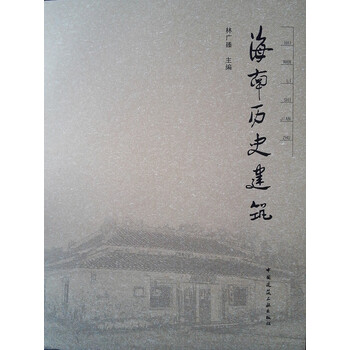 海南历史建筑
林广臻 主编
中国建筑工业出版社